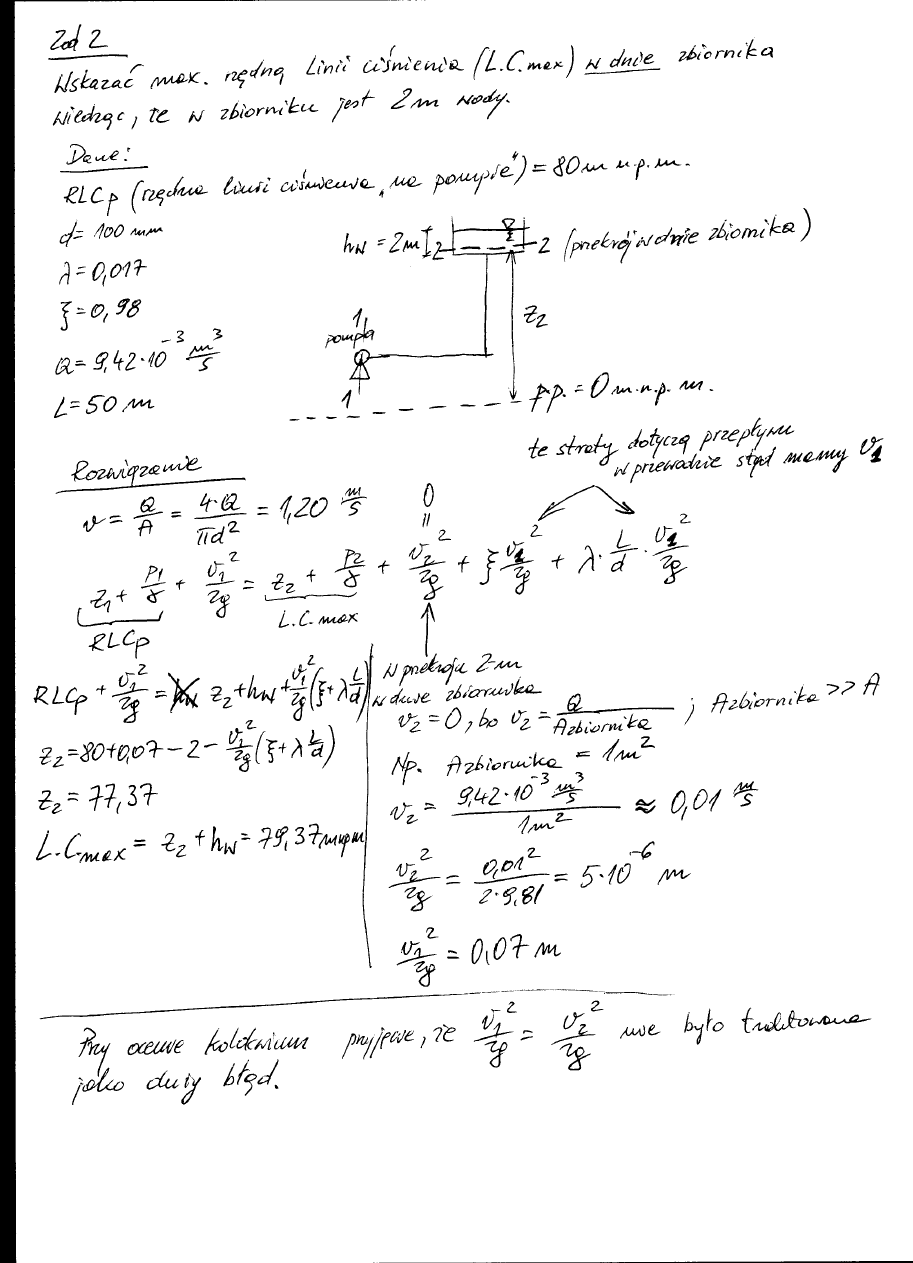 Zad 2
Wskazać max. rzędną Linii ciśnienia (L.C.max) w dnie zbiornika
wiedząc, że w zbiorniku jest 2m wody.
Dane:
RLCp (rzędna linii ciśnienia „na pompie”) = 80 m n.p.m.
d = 100 mm
hw = 2m 2 2 (przekrój w dnie zbiornika)
λ = 0,017
ξ = 0,98
z₂
1
pompa
Q = 9,42·10⁻³ m³/s
1
L = 50 m
p.p. = 0 m.n.p.m.
te straty dotyczą przepływu
w przewodzie stąd mamy v₁
Rozwiązanie
v = Q/A = 4·Q/πd² = 1,20 m/s
0
=
z₁ + p₁/γ + v₁²/2g = z₂ + p₂/γ + v₂²/2g + ξ v₁²/2g + λ · L/d · v₁²/2g
RLCp
L.C.max
RLCp + v₁²/2g = z₂ + hw + v₁²/2g (ξ + λ L/d)
z₂ = 80 + 0,07 − 2 − v₁²/2g (ξ + λ L/d)
z₂ = 77,37
L.Cmax = z₂ + hw = 79,37 m npm
W przekroju 2-m
w dnie zbiornika
v₂ = 0, bo v₂ = Q/Azbiornika ; Azbiornika >> A
Np. Azbiornika = 1m²
v₂ = 9,42·10⁻³ m³/s / 1m² ≈ 0,01 m/s
v₂²/2g = 0,01²/2·9,81 = 5·10⁻⁶ m
v₁²/2g = 0,07 m
Przy ocenie kolokwium przyjęcie, że v₁²/2g = v₂²/2g nie było traktowane
jako duży błąd.